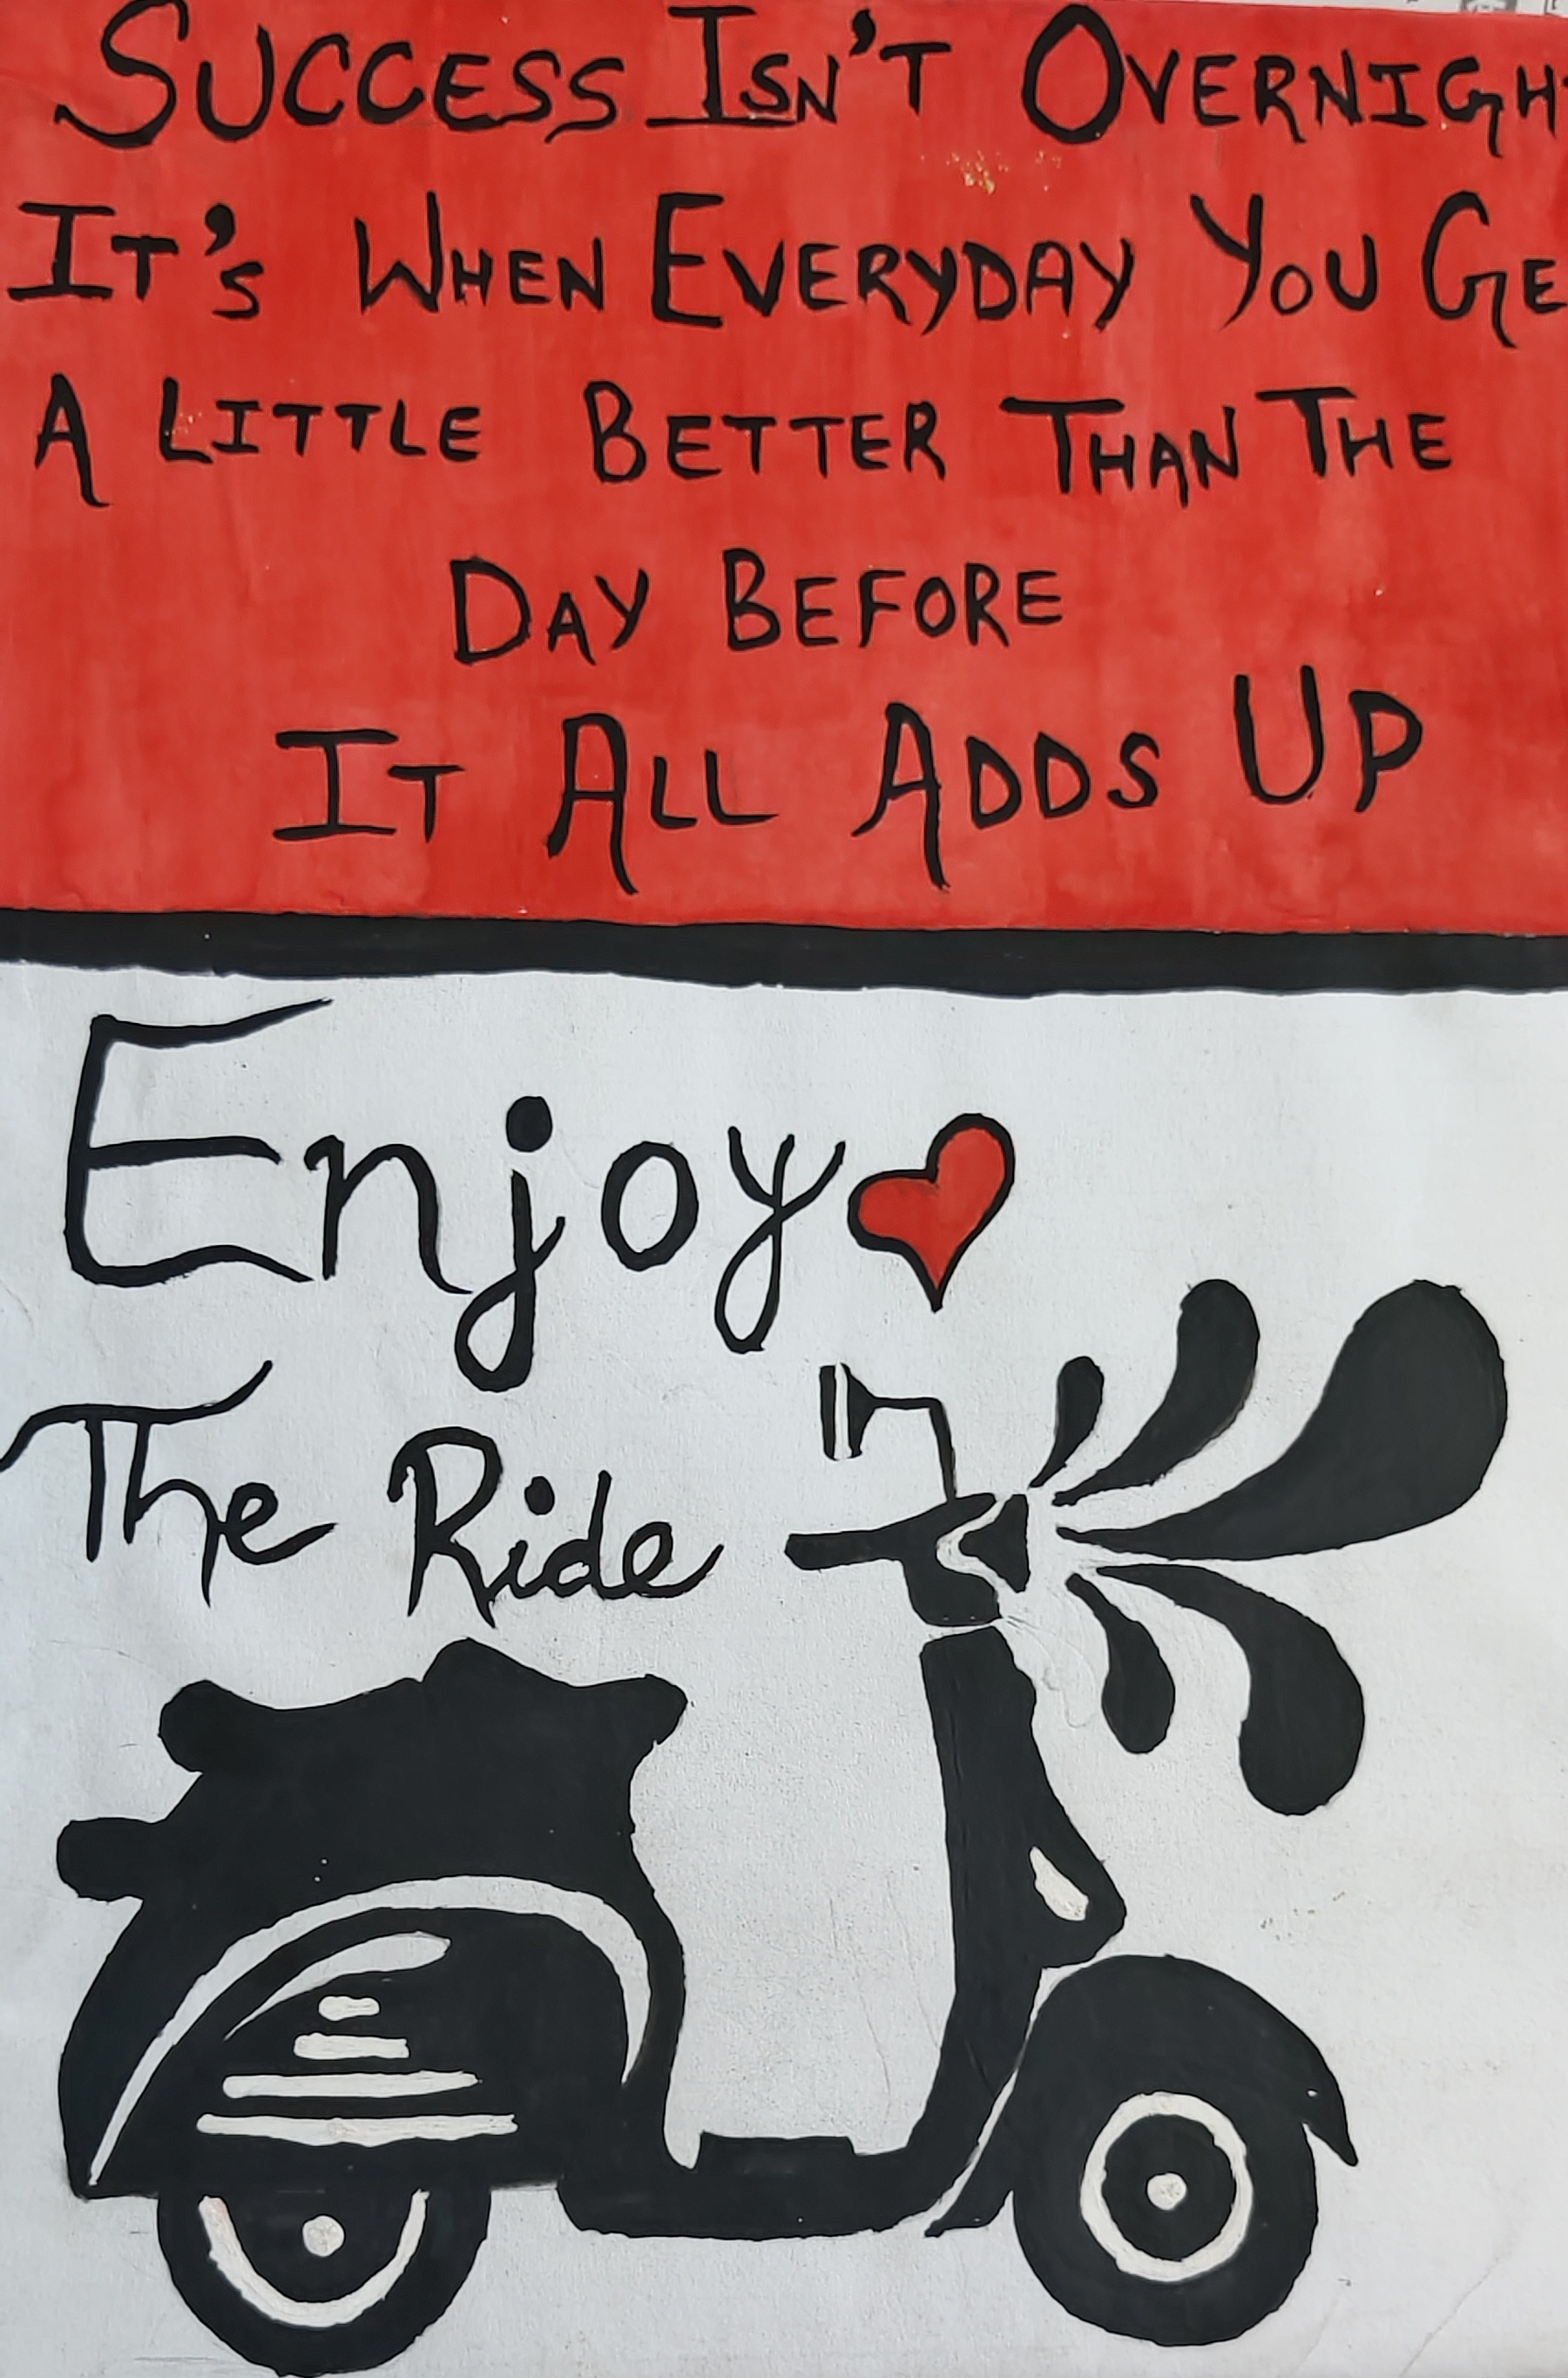 SUCCESS ISN'T OVERNIGH
IT'S WHEN EVERYDAY YOU GE
A LITTLE BETTER THAN THE
DAY BEFORE
IT ALL ADDS UP
Enjoy
The Ride